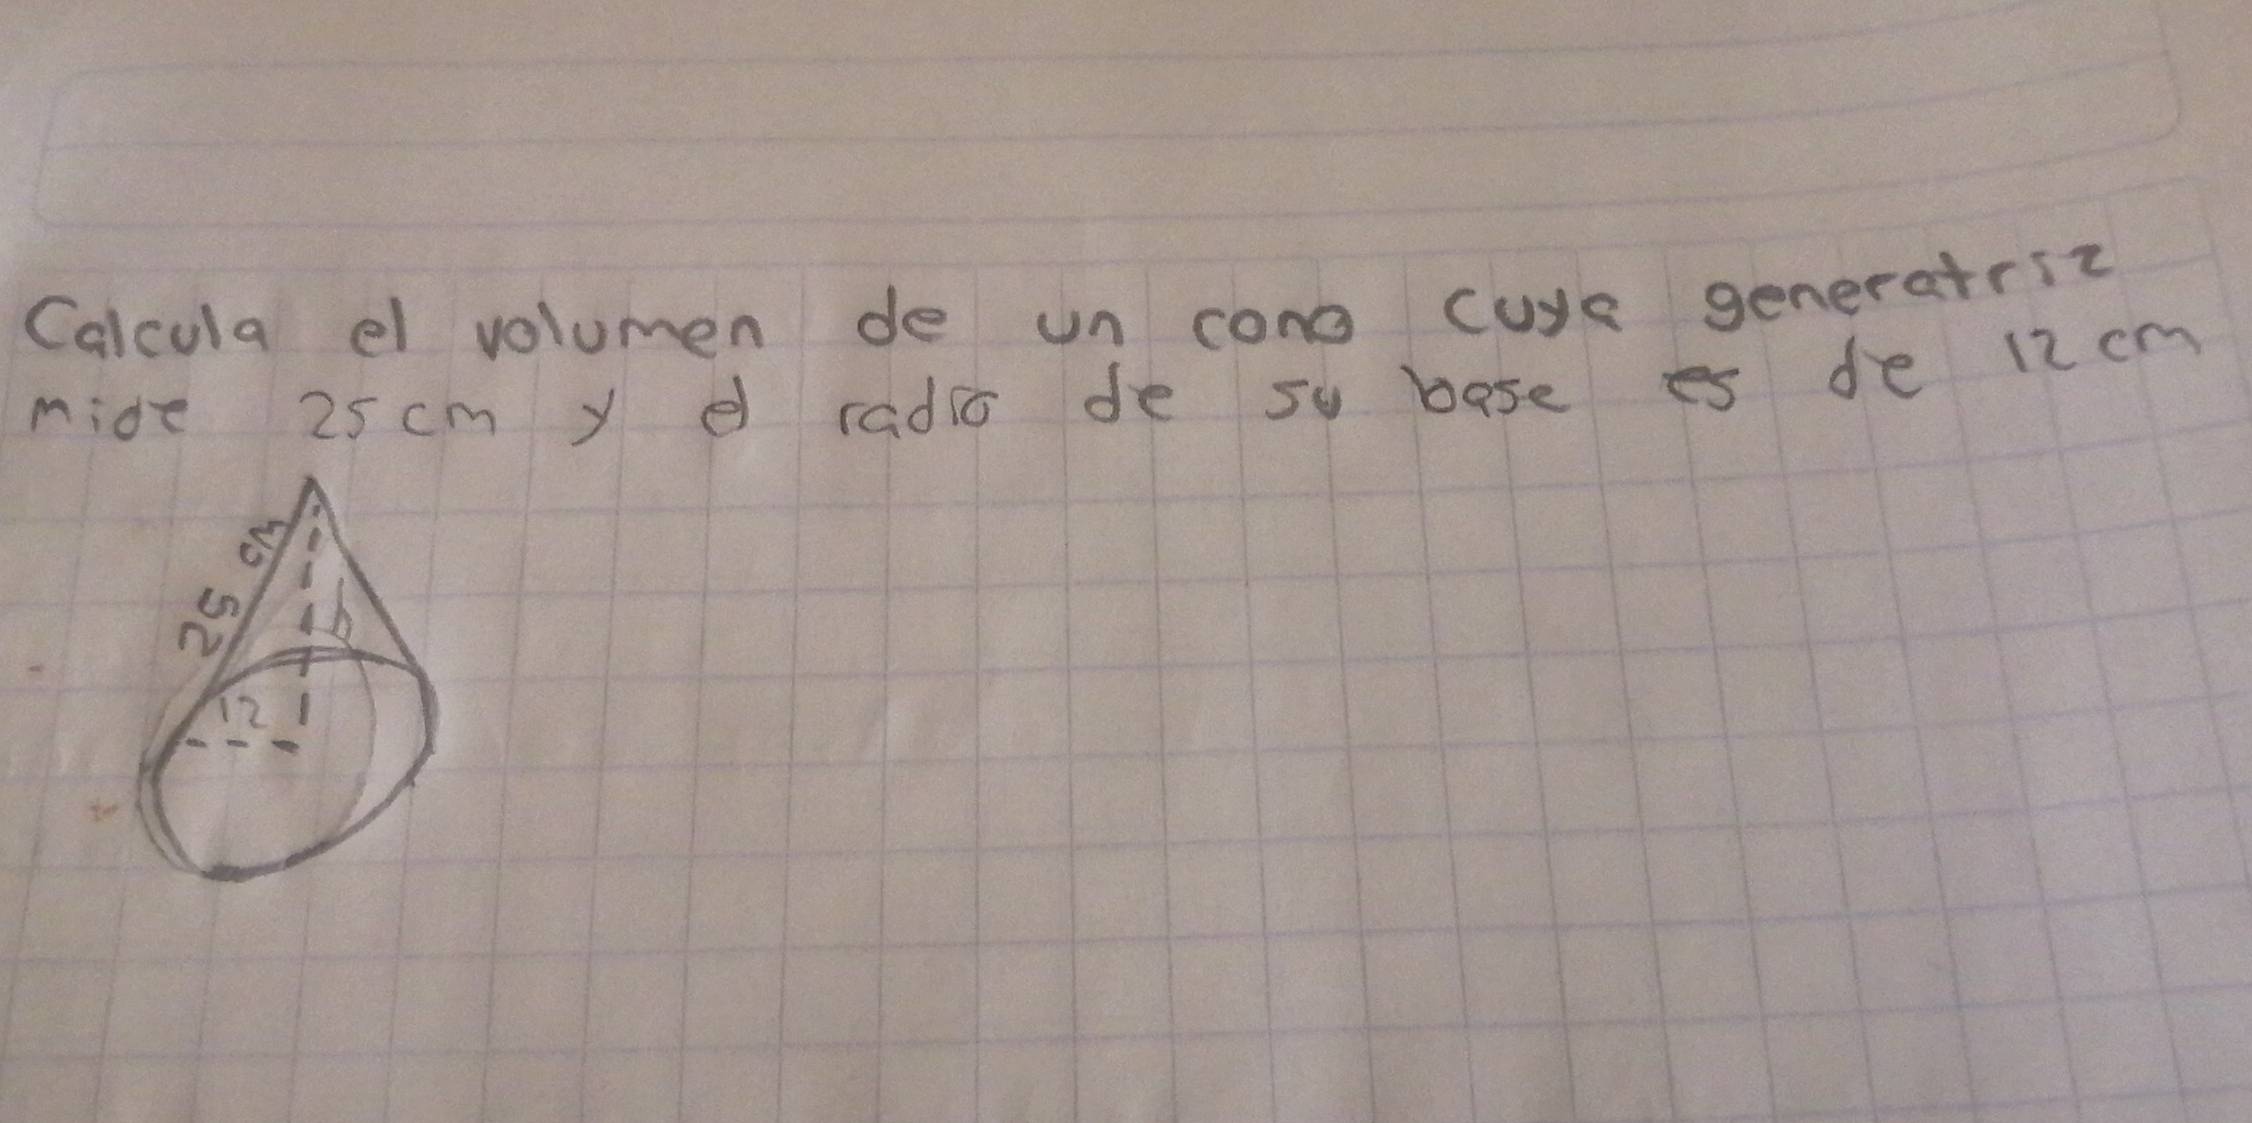 Calcula el volumen de un cono cuya generatriz
mide 25 cm y el radio de su base es de 12 cm
25 cm
h
12